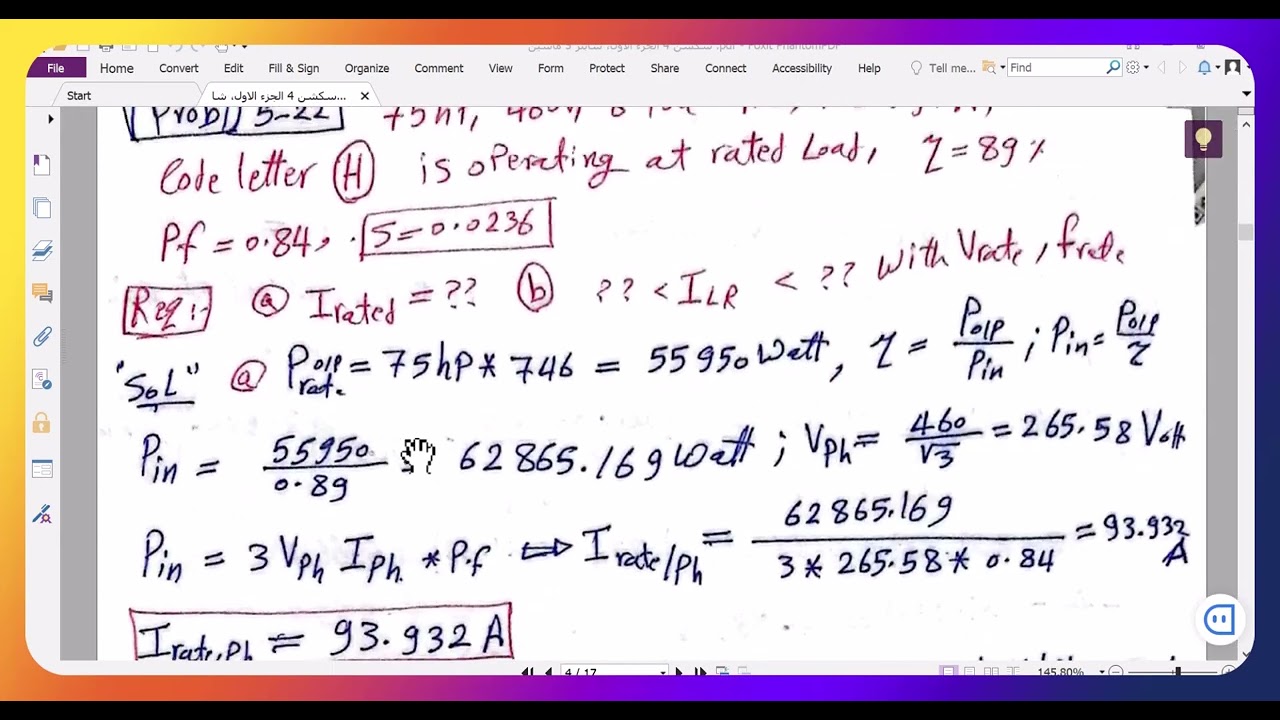 File Home Convert Edit Fill & Sign Organize Comment View Form Protect Share Connect Accessibility Help Tell me... Find
Start
...سكشن 4 الجزء الاول، شا
Prob 5-22 75hp, 460V,
Code letter (H) is operating at rated Load, η = 89 %
P.f = 0.84, S = 0.0236
Req:- (a) Irated = ?? (b) ?? < ILR < ?? with Vrate, frate
"SoL" (a) Po/p rate = 75hp * 746 = 55950 Watt, η = Po/p / Pin ; Pin = Po/p / η
Pin = 55950 / 0.89 = 62865.169 Watt ; VPh = 460 / √3 = 265.58 Volt
Pin = 3 VPh IPh * P.f ⟺ Irate/Ph = 62865.169 / 3 * 265.58 * 0.84 = 93.932 A
Irate,Ph = 93.932 A
4 / 17
145.80%